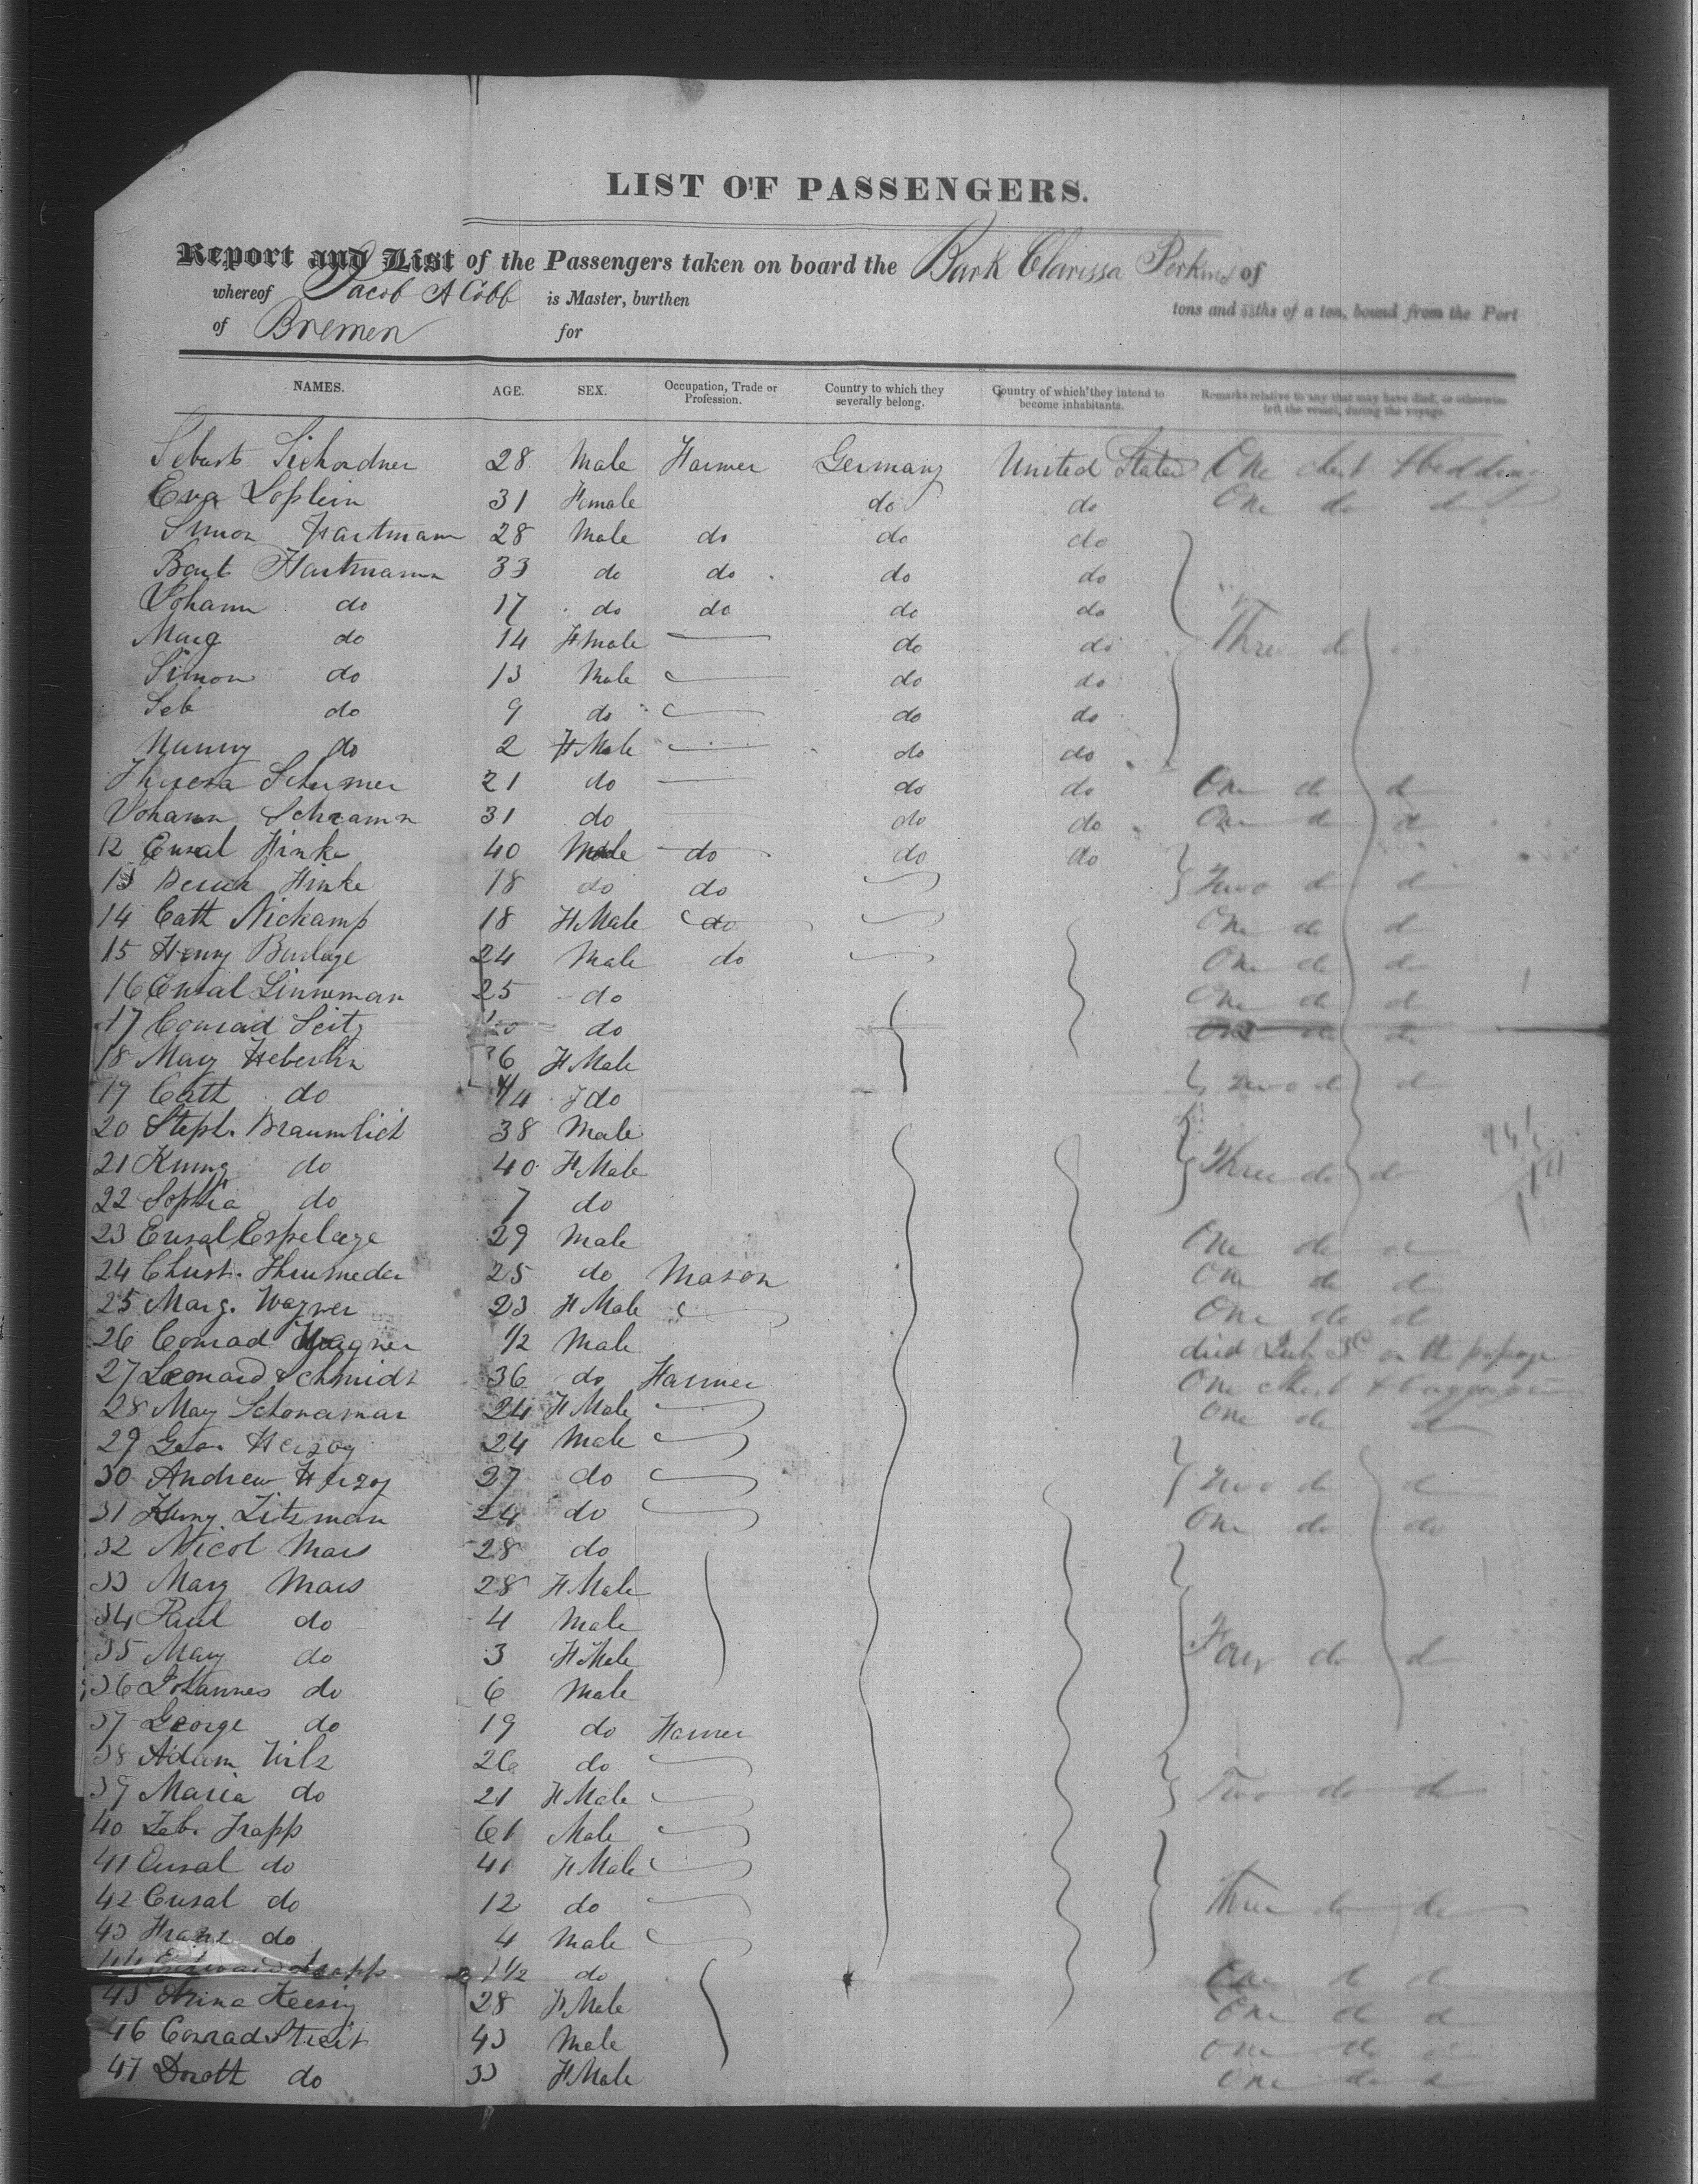 LIST OF PASSENGERS.
Report and List of the Passengers taken on board the Bark Clarissa Perkins of
whereof Jacob A Cobb is Master, burthen tons and 95ths of a ton, bound from the Port
of Bremen for
NAMES. AGE. SEX. Occupation, Trade or Profession. Country to which they severally belong. Country of which they intend to become inhabitants. Remarks relative to any that may have died, or otherwise left the vessel, during the voyage.
28 Male Farmer Germany United States One chest & bedding
Eva 31 Female do do One do d
Simon Hartmann 28 Male do do do
Hartmann 33 do do do do
Johann do 17 do do do do
Marg do 14 Fmale do do Three do
Simon do 13 Male do do
Seb do 9 do do do
do 2 FMale do do
Theresa 21 do do do One do d
Johann Schramm 31 do do do One do d
12 Hinke 40 Male do do do
13 Hinke 18 do do Two do d
14 Cath Nickamp 18 FMale do One do d
15 Henry Burlage 24 Male do One do d
16 Linneman 25 do One do d
17 Conrad Seitz do One do do
18 Mary Heberlin 36 FMale
19 Cath do 1/4 do Two do d
20 Steph. Braumlich 38 Male
21 do 40 FMale Three do d
22 Sophia do 7 do
23 Espelage 29 Male One do d
24 Christ. 25 do Mason One do d
25 Marg. Wagner 23 FMale One do d
26 Conrad Wagner 1/2 Male died on the passage
27 Leonard Schmidt 36 do Farmer One chest & baggage
28 24 FMale One do d
29 Geo. Herzog 24 Male
30 Andrew Herzog 27 do Two do d
31 Henry Litzman 24 do One do do
32 Nicol Mars 28 do
33 Marg Mars 28 FMale
34 Paul do 4 Male
35 Mary do 3 FMale Four do d
36 Johannes do 6 Male
37 George do 19 do Farmer
38 Adam 26 do
39 Maria do 21 FMale Two do do
40 Trapp 61 Male
41 do 41 FMale
42 do 12 do Three do do
43 Franz do 4 Male
44 Edward Trapp 1 1/2 do One do d
45 Anna 28 FMale One do d
46 Conrad Streit 43 Male One do d
47 Doroth do 33 FMale One do d